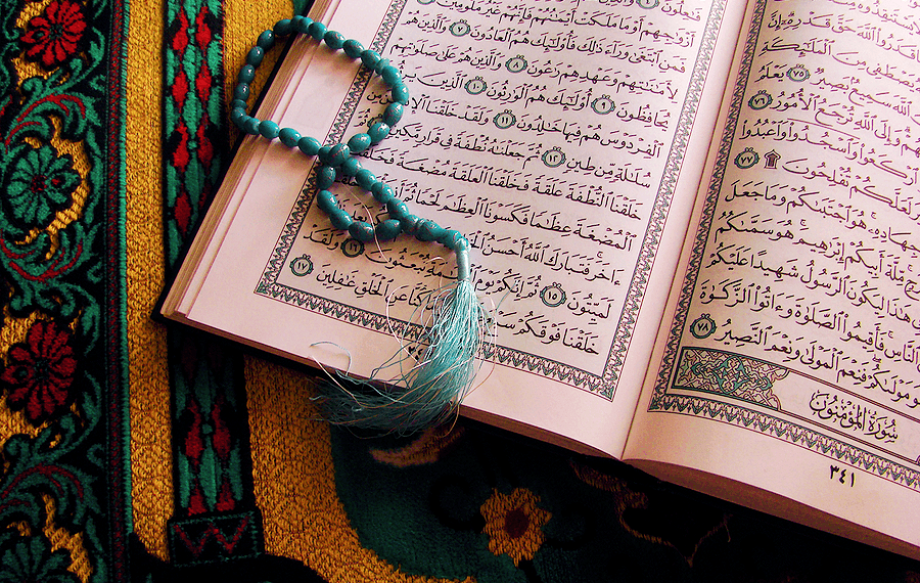 قَدَرُوا۟ ٱللَّهَ حَقَّ قَدْرِهِۦٓ إِنَّ
يَصْطَفِى مِنَ ٱلْمَلَـٰٓئِكَةِ
ٱللَّهَ سَمِيعٌۢ بَصِيرٌ ٧٥ يَعْلَمُ
وَإِلَى ٱللَّهِ تُرْجَعُ ٱلْأُمُورُ ٧٦
ٱرْكَعُوا۟ وَٱسْجُدُوا۟ وَٱعْبُدُوا۟
لَعَلَّكُمْ تُفْلِحُونَ ۩ ٧٧
جِهَادِهِۦ هُوَ ٱجْتَبَىٰكُمْ وَمَا جَعَلَ
مِّلَّةَ أَبِيكُمْ إِبْرَٰهِيمَ هُوَ سَمَّىٰكُمُ
هَـٰذَا لِيَكُونَ ٱلرَّسُولُ شَهِيدًا عَلَيْكُمْ
ٱلنَّاسِ فَأَقِيمُوا۟ ٱلصَّلَوٰةَ وَءَاتُوا۟ ٱلزَّكَوٰةَ
هُوَ مَوْلَىٰكُمْ فَنِعْمَ ٱلْمَوْلَىٰ وَنِعْمَ ٱلنَّصِيرُ ٧٨
سُورَةُ الْمُؤْمِنُونَ
٣٤١
أَزْوَٰجِهِمْ أَوْ مَا مَلَكَتْ أَيْمَـٰنُهُمْ فَإِنَّهُمْ غَيْرُ مَلُومِينَ
فَمَنِ ٱبْتَغَىٰ وَرَآءَ ذَٰلِكَ فَأُو۟لَـٰٓئِكَ هُمُ ٱلْعَادُونَ ٧ وَٱلَّذِينَ هُمْ
لِأَمَـٰنَـٰتِهِمْ وَعَهْدِهِمْ رَٰعُونَ ٨ وَٱلَّذِينَ هُمْ عَلَىٰ صَلَوَٰتِهِمْ
يُحَافِظُونَ ٩ أُو۟لَـٰٓئِكَ هُمُ ٱلْوَٰرِثُونَ ١٠ ٱلَّذِينَ
ٱلْفِرْدَوْسَ هُمْ فِيهَا خَـٰلِدُونَ ١١ وَلَقَدْ خَلَقْنَا ٱلْإِنسَـٰنَ مِن
سُلَـٰلَةٍ مِّن طِينٍ ١٢ ثُمَّ جَعَلْنَـٰهُ نُطْفَةً فِى قَرَارٍ مَّكِينٍ
خَلَقْنَا ٱلنُّطْفَةَ عَلَقَةً فَخَلَقْنَا ٱلْعَلَقَةَ مُضْغَةً فَخَلَقْنَا
ٱلْمُضْغَةَ عِظَـٰمًا فَكَسَوْنَا ٱلْعِظَـٰمَ لَحْمًا ثُمَّ أَنشَأْنَـٰهُ خَلْقًا
ءَاخَرَ فَتَبَارَكَ ٱللَّهُ أَحْسَنُ
لَمَيِّتُونَ ١٥ ثُمَّ إِنَّكُمْ يَوْمَ ٱلْقِيَـٰمَةِ تُبْعَثُونَ ١٦ وَلَقَدْ
خَلَقْنَا فَوْقَكُمْ سَبْعَ كُنَّا عَنِ ٱلْخَلْقِ غَـٰفِلِينَ ١٧